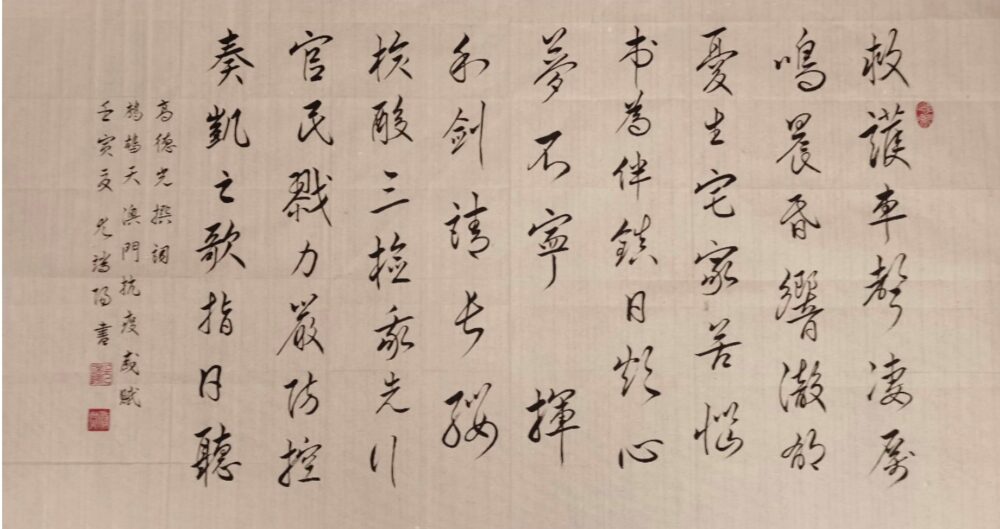 救護車聲凄厲
鳴晨昏響澈郁
憂生宅家苦惱
书為伴鎮日煩心
夢不寧 揮
利劍請长 纓
核酸三檢我先行
官民戮力嚴防控
奏凱之歌指日聽
高德光撰詞
鷓鴣天 澳門抗疫感賦
壬寅夏 端陽書